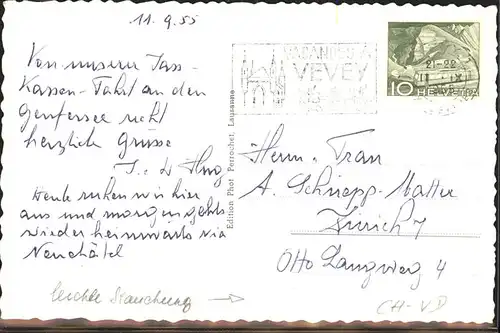 11.9.55
Von unserer Jass-
Kassen-Fahrt an den
Genfersee recht
herzliche Grüsse
J. + D. Hug
Heute ruhen wir hier
aus und morgen gehts
wieder heimwärts via
Neuchâtel
leichte Stauchung →
Edition Phot. Perrochet, Lausanne
VACANCES A
VEVEY
21-22
11 IX
10 HELVETIA
Herrn + Frau
A. Schnepp-Matter
Zürich 4
Otto Langweg 4
CH-VD